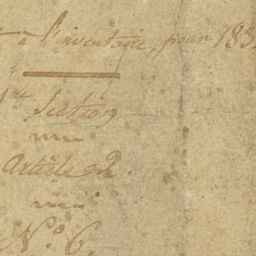 à l'inventaire, pour 183
Section
Article 2.
N.º 6.